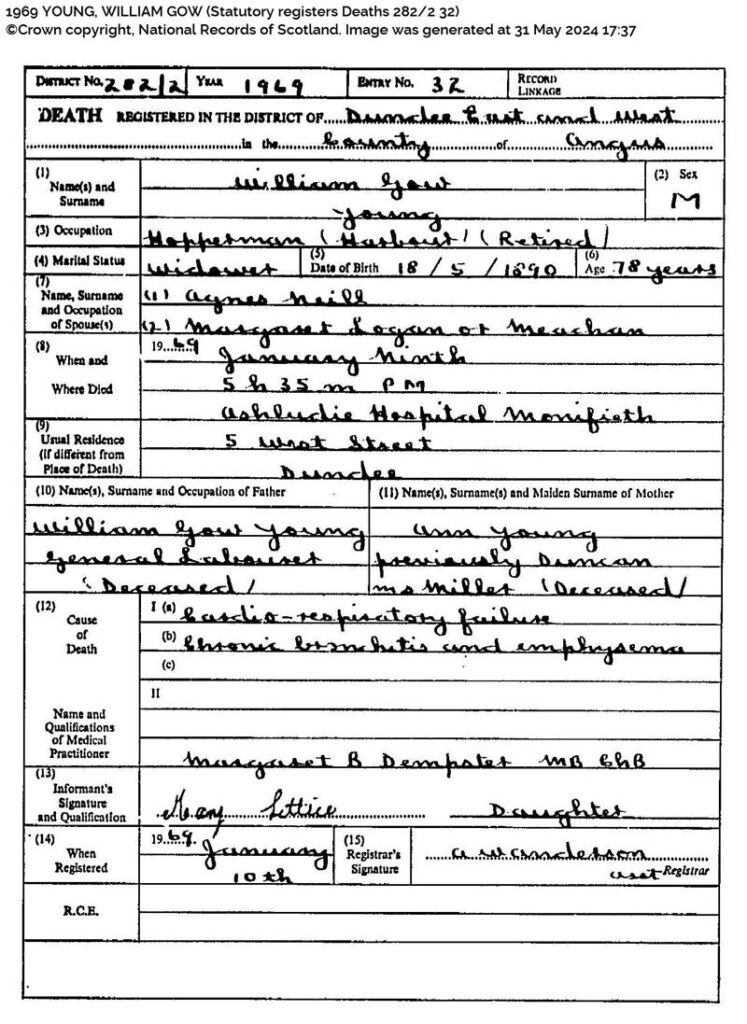 1969 YOUNG, WILLIAM GOW (Statutory registers Deaths 282/2 32)
©Crown copyright, National Records of Scotland. Image was generated at 31 May 2024 17:37
DISTRICT NO. 282/2 YEAR 1969 ENTRY NO. 32 RECORD LINKAGE
DEATH REGISTERED IN THE DISTRICT OF Dundee East and West
in the County of Angus
(1) Name(s) and Surname William Gow
Young
(2) Sex M
(3) Occupation Hopperman (Harbour) (Retired)
(4) Marital Status Widower (5) Date of Birth 18/5/1890 (6) Age 78 years
(7) Name, Surname and Occupation of Spouse(s) (1) Agnes Neill
(2) Margaret Logan or Meachan
(8) When and Where Died 1969 January Ninth
5 h 35 m PM
Ashludie Hospital Monifieth
(9) Usual Residence (If different from Place of Death) 5 West Street
Dundee
(10) Name(s), Surname and Occupation of Father
William Gow Young
General Labourer
(Deceased)
(11) Name(s), Surname(s) and Maiden Surname of Mother
Ann Young
previously Duncan
ms Miller (Deceased)
(12) Cause of Death
I (a) Cardio-respiratory failure
(b) Chronic bronchitis and emphysema
(c)
II
Name and Qualifications of Medical Practitioner
Margaret B Dempster MB ChB
(13) Informant's Signature and Qualification Mary Lettice Daughter
(14) When Registered 1969. January
10th
(15) Registrar's Signature A W Anderson
asst Registrar
R.C.E.